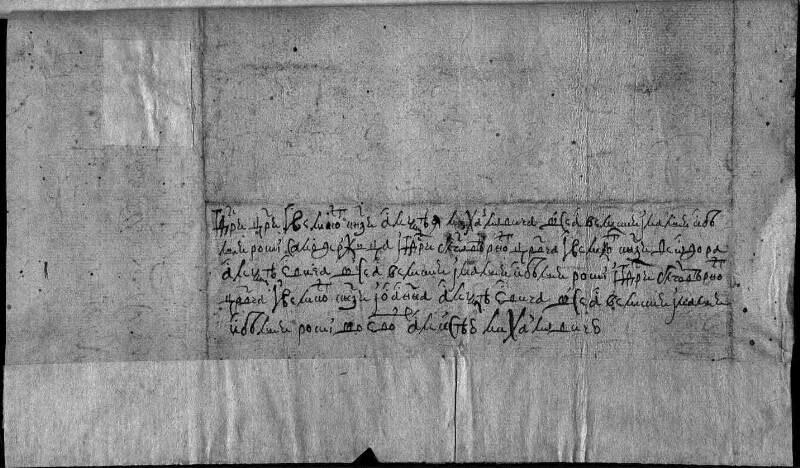 великого кнзя алеѯѣя михаиловича всеа великия i малыя и бѣ
лыя росиi самодержца i гдря блговѣрного црвча i великого кнзя феодора
алеѯѣевича всеа великия i малыя и бѣлыя росиi i гдря блговѣрного
црвча i великого кнзя iоанна алеѯѣевича всеа великия i малыя
и бѣлыя росиi михаиловичю